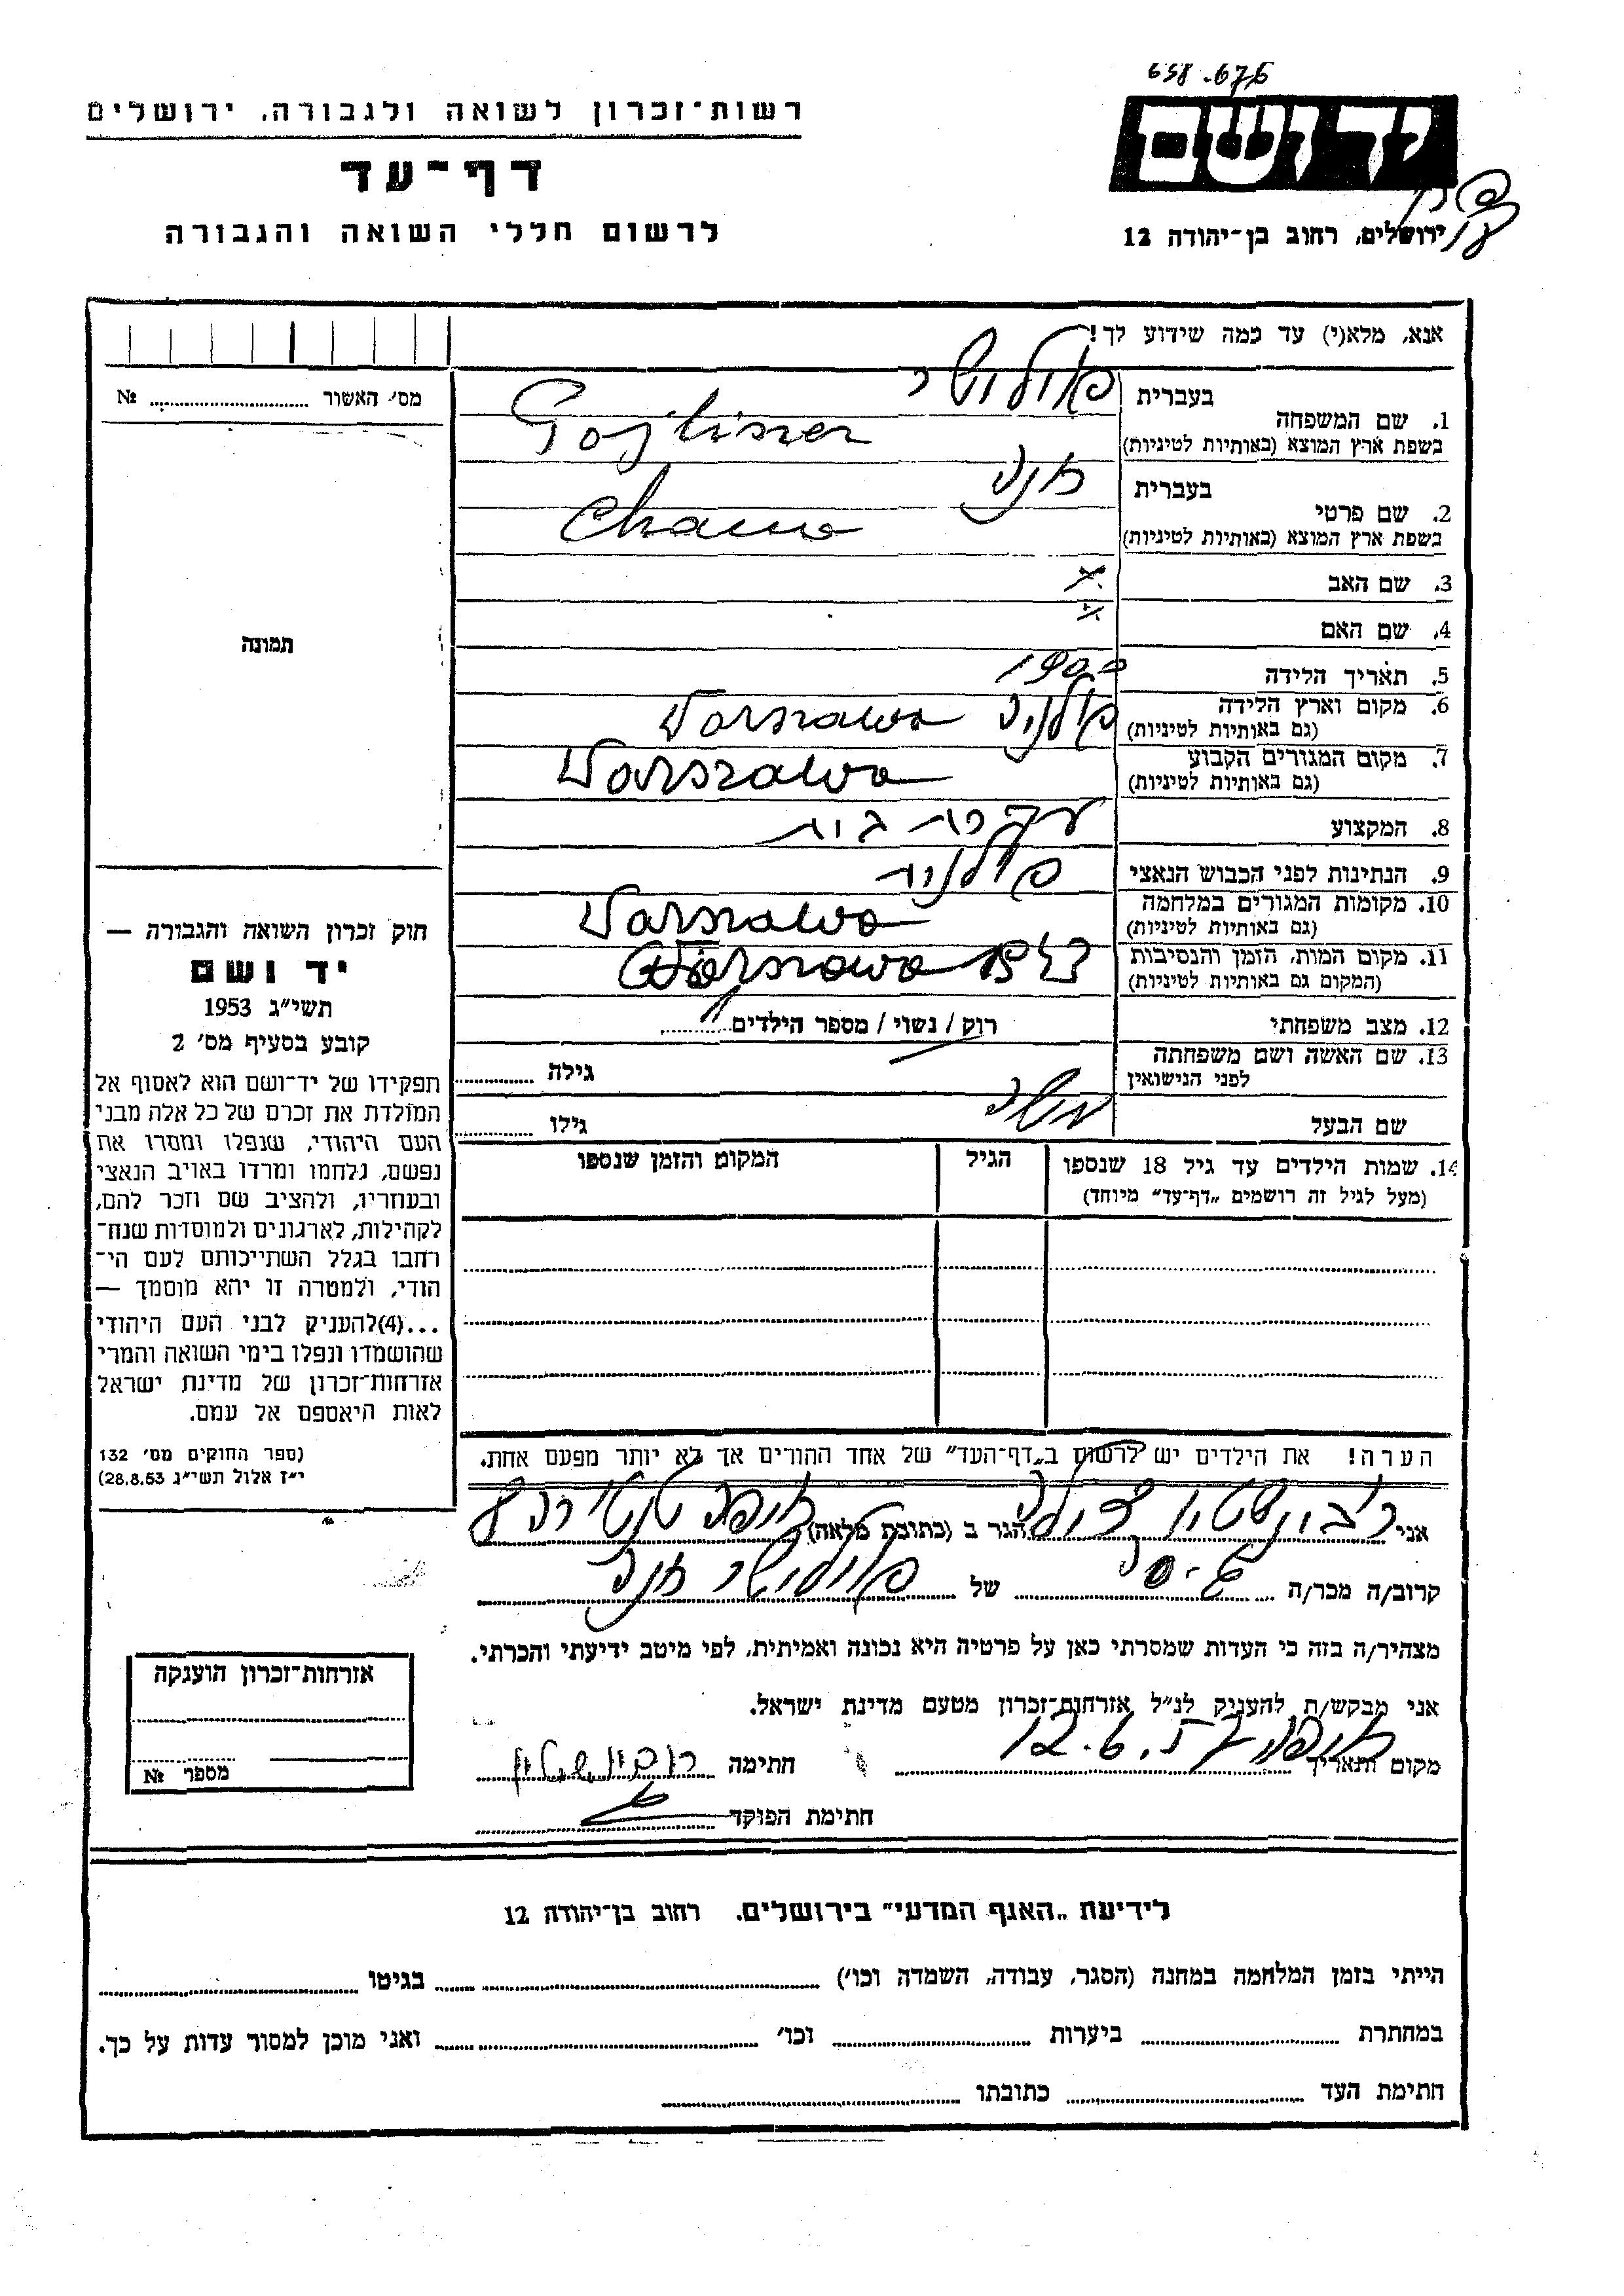 רשות־זכרון לשואה ולגבורה, ירושלים
דף־עד
לרשום חללי השואה והגבורה
יד ושם
ירושלים, רחוב בן־יהודה 12
אנא, מלא(י) עד כמה שידוע לך!
מס׳ האשור № 
1. שם המשפחה בעברית
בשפת ארץ המוצא (באותיות לטיניות)
2. שם פרטי בעברית חנה
בשפת ארץ המוצא (באותיות לטיניות)
3. שם האב
4. שם האם
תמונה
5. תאריך הלידה 1900
6. מקום וארץ הלידה פולניה Warszawa
(גם באותיות לטיניות)
7. מקום המגורים הקבוע Warszawa
(גם באותיות לטיניות)
8. המקצוע עקרת בית
9. הנתינות לפני הכבוש הנאצי פולנית
10. מקומות המגורים במלחמה Warszawa
(גם באותיות לטיניות)
11. מקום המות, הזמן והנסיבות Warszawa 1943
(המקום גם באותיות לטיניות)
12. מצב משפחתי רוק / נשוי / מספר הילדים
13. שם האשה ושם משפחתה
לפני הנישואין גילה
שם הבעל משה גילו
14. שמות הילדים עד גיל 18 שנספו הגיל המקום והזמן שנספו
(מעל לגיל זה רושמים „דף־עד״ מיוחד)
הערה! את הילדים יש לרשום ב„דף־העד״ של אחד ההורים אך לא יותר מפעם אחת.
חוק זכרון השואה והגבורה —
יד ושם
תשי״ג 1953
קובע בסעיף מס׳ 2
תפקידו של יד־ושם הוא לאסוף אל
המולדת את זכרם של כל אלה מבני
העם היהודי, שנפלו ומסרו את
נפשם, נלחמו ומרדו באויב הנאצי
ובעוזריו, ולהציב שם וזכר להם,
לקהילות, לארגונים ולמוסדות שנח־
רבו בגלל השתייכותם לעם הי־
הודי, ולמטרה זו יהא מוסמך —
...(4)להעניק לבני העם היהודי
שהושמדו ונפלו בימי השואה והמרי
אזרחות־זכרון של מדינת ישראל
לאות היאספם אל עמם.
(ספר החוקים מס׳ 132
י״ז אלול תשי״ג 28.8.53)
אני הגר ב (כתובת מלאה) חיפה
קרוב/ה מכר/ה של חנה
מצהיר/ה בזה כי העדות שמסרתי כאן על פרטיה היא נכונה ואמיתית, לפי מיטב ידיעתי והכרתי.
אני מבקש/ת להעניק לנ״ל אזרחות־זכרון מטעם מדינת ישראל.
מקום ותאריך חיפה 12.6.57 חתימה רובינשטיין
חתימת הפוקד
אזרחות־זכרון הוענקה
מספר №
לידיעת „האגף המדעי״ בירושלים, רחוב בן־יהודה 12
הייתי בזמן המלחמה במחנה (הסגר, עבודה, השמדה וכו׳) בגיטו
במחתרת ביערות וכו׳ ואני מוכן למסור עדות על כך.
חתימת העד כתובתו